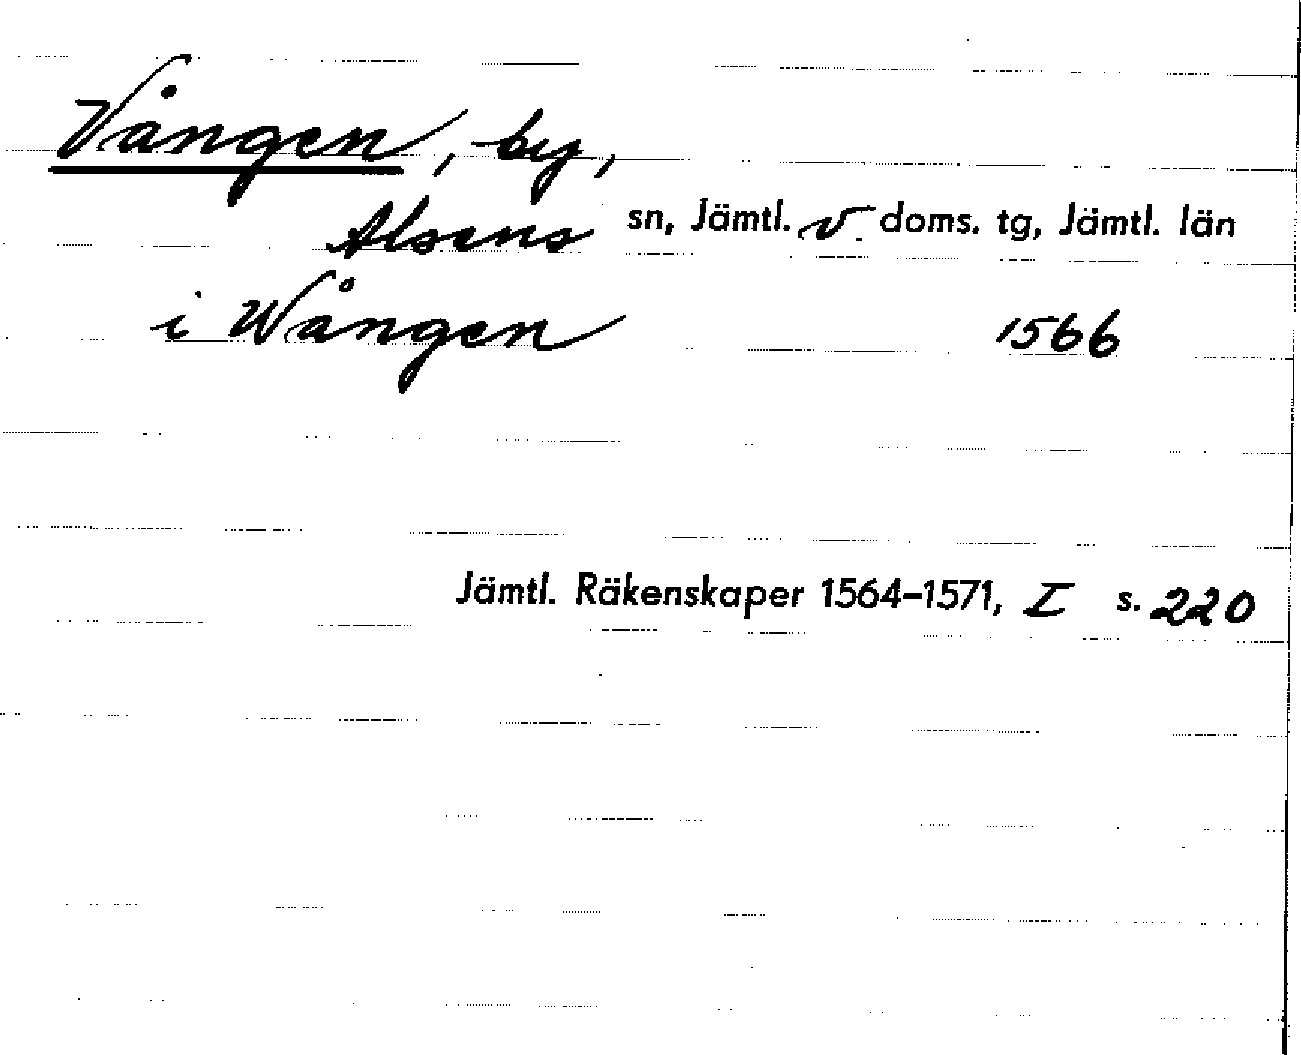 Vången, by,
Alsens sn, Jämtl. v. doms. tg, Jämtl. län
i Wången 1566
Jämtl. Räkenskaper 1564–1571, I s. 220